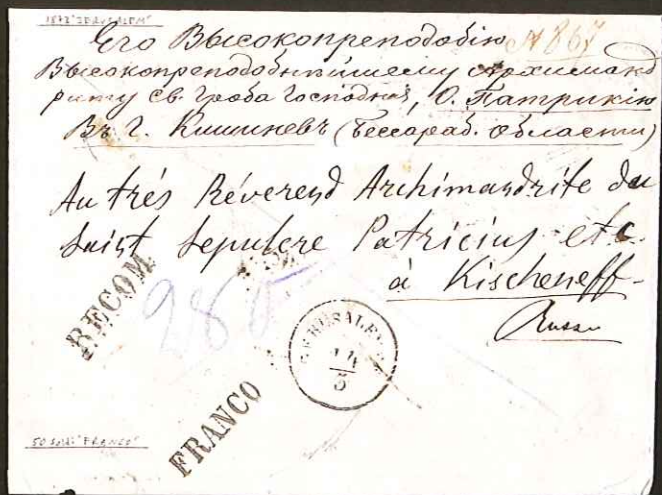 1872 "JERUSALEM"
Его Высокопреподобію № 867
Высокопреподобнѣйшему Архиманд
риту Св. Гроба Господня, О. Патрикію
Въ г. Кишиневъ (Бессараб. Области)
Au trés Révérend Archimandrite du
Saint Sepulcre Patricius etc.
à Kischeneff
Russie
RECOM
285
JERUSALEM
14/5
FRANCO
50 soldi "FRANCO"